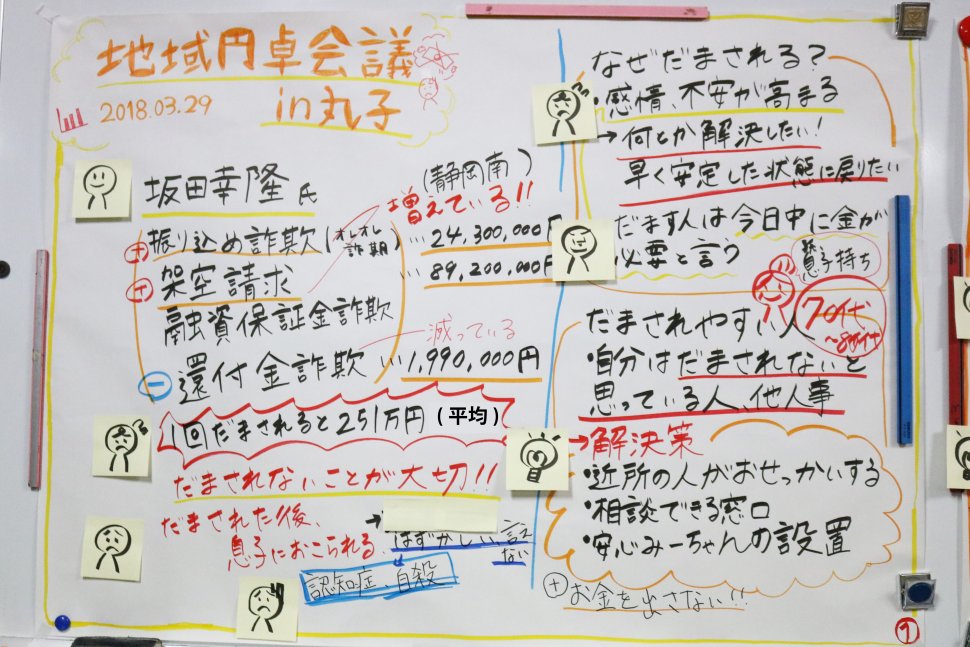 地域円卓会議
2018.03.29 in丸子
坂田幸隆氏
(静岡南)
増えている!!
+振り込め詐欺(オレオレ詐期)…24,300,000円
+架空請求 …89,200,000円
融資保証金詐欺
減っている
−還付金詐欺…1,990,000円
1回だまされると251万円(平均)
だまされないことが大切!!
だまされた後、
息子におこられる
→
はずかしい、言えない
認知症、自殺
なぜだまされる?
・感情、不安が高まる
→何とか解決したい!
早く安定した状態に戻りたい
だます人は今日中に金が
必要と言う
息子持ち
70代
〜80代
だまされやすい人
・自分はだまされないと
思っている人、他人事
→解決策
・近所の人がおせっかいする
・相談できる窓口
・安心みーちゃんの設置
+お金を出さない!!
1